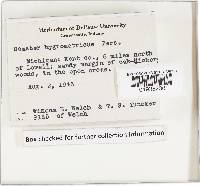 Herbarium of DePauw University
Greencastle, Indiana
Geaster hygrometricus Pers.
Michigan: Kent Co., 6 miles north
of Lowell, sandy margin of oak-hickory
woods, in the open areas.
Aug. 2, 1943
Winona H. Welch & T. G. Yuncker
of Welch
Box checked for further collection information